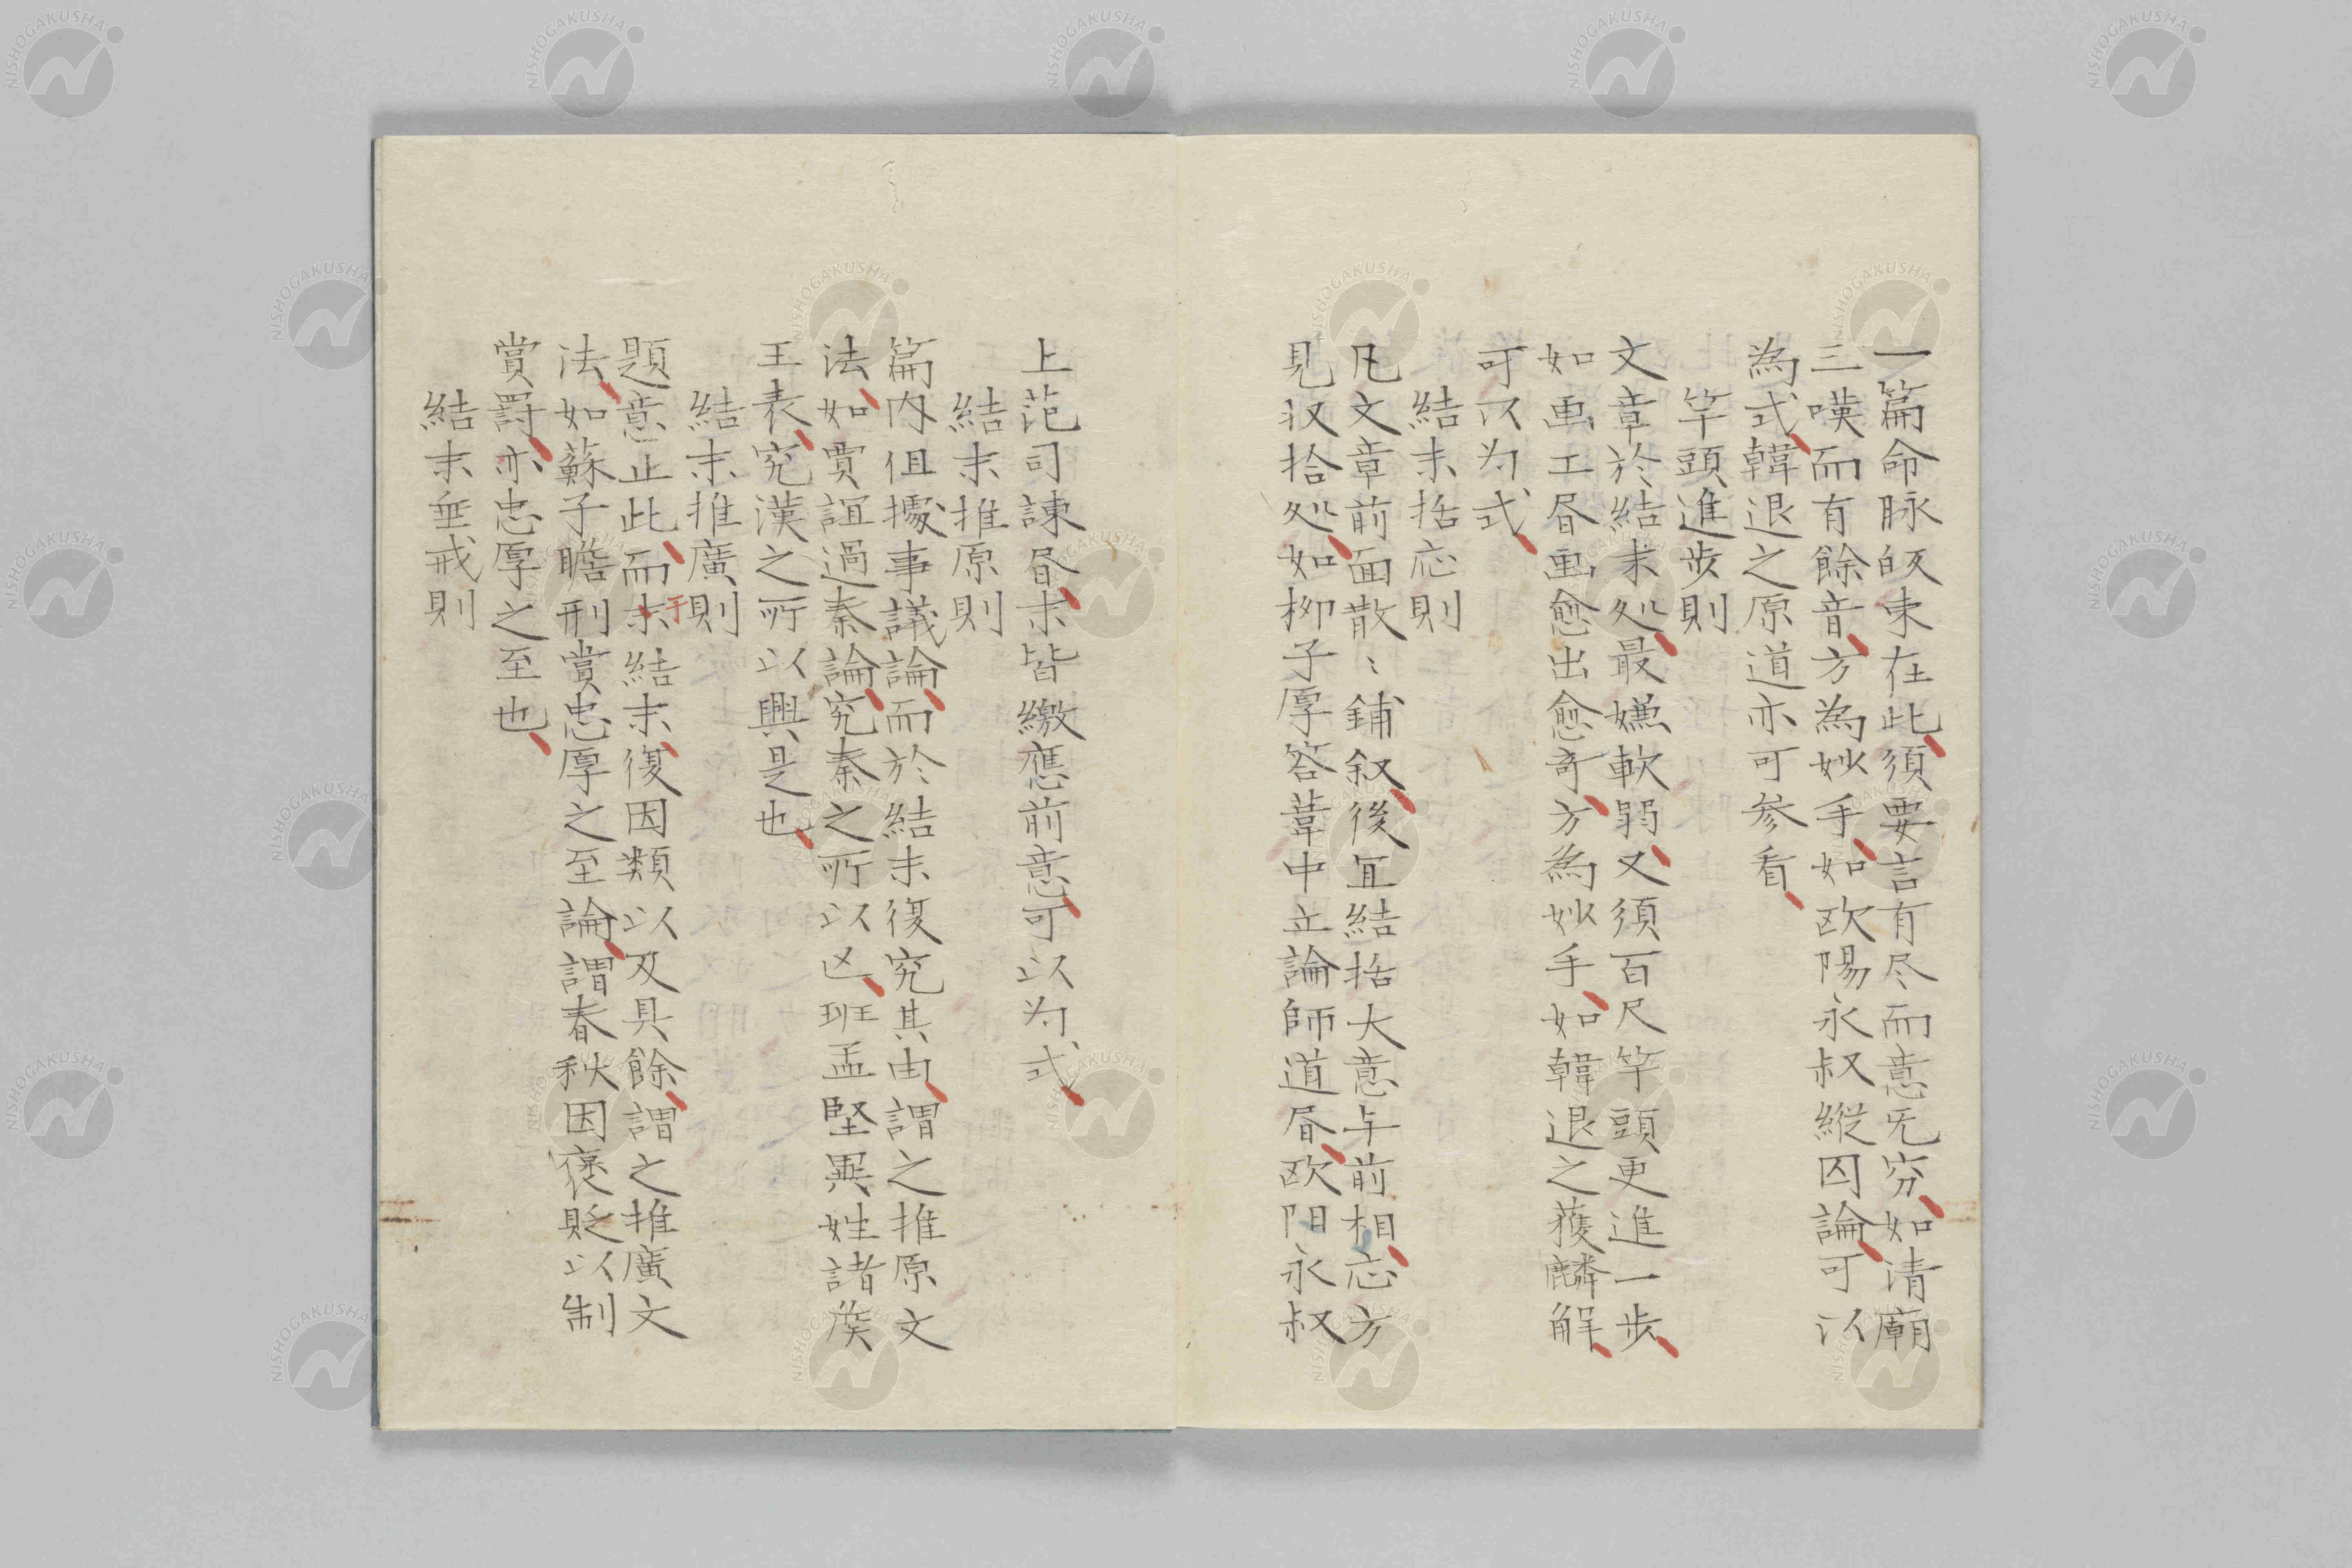 一篇命脉皈束在此須要言有尽而意旡穷如清廟
三嘆而有餘音方為妙手如欧陽永叔縦囚論可以
為式韓退之原道亦可参看
竿頭進步則
文章於結末処最嫌軟弱又須百尺竿頭更進一步
如画工昼画愈出愈奇方為妙手如韓退之獲麟解
可以為式
結末括応則
凡文章前面散〻鋪叙後冝結括大意与前相応方
見収拾処如柳子厚答韋中立論師道昼欧阳永叔
上范司諌昼末皆繳應前意可以為式
結末推原則
篇内但據事議論而於結末復究其由謂之推原文
法如賈誼過秦論究秦之所以亡班孟堅異姓諸侯
王表究漢之所以興是也
結末推廣則
題意止此而末于結末復因類以及其餘謂之推廣文
法如蘇子瞻刑賞忠厚之至論謂春秋因褒貶以制
賞罰亦忠厚之至也
結末垂戒則
NISHOGAKUSHA